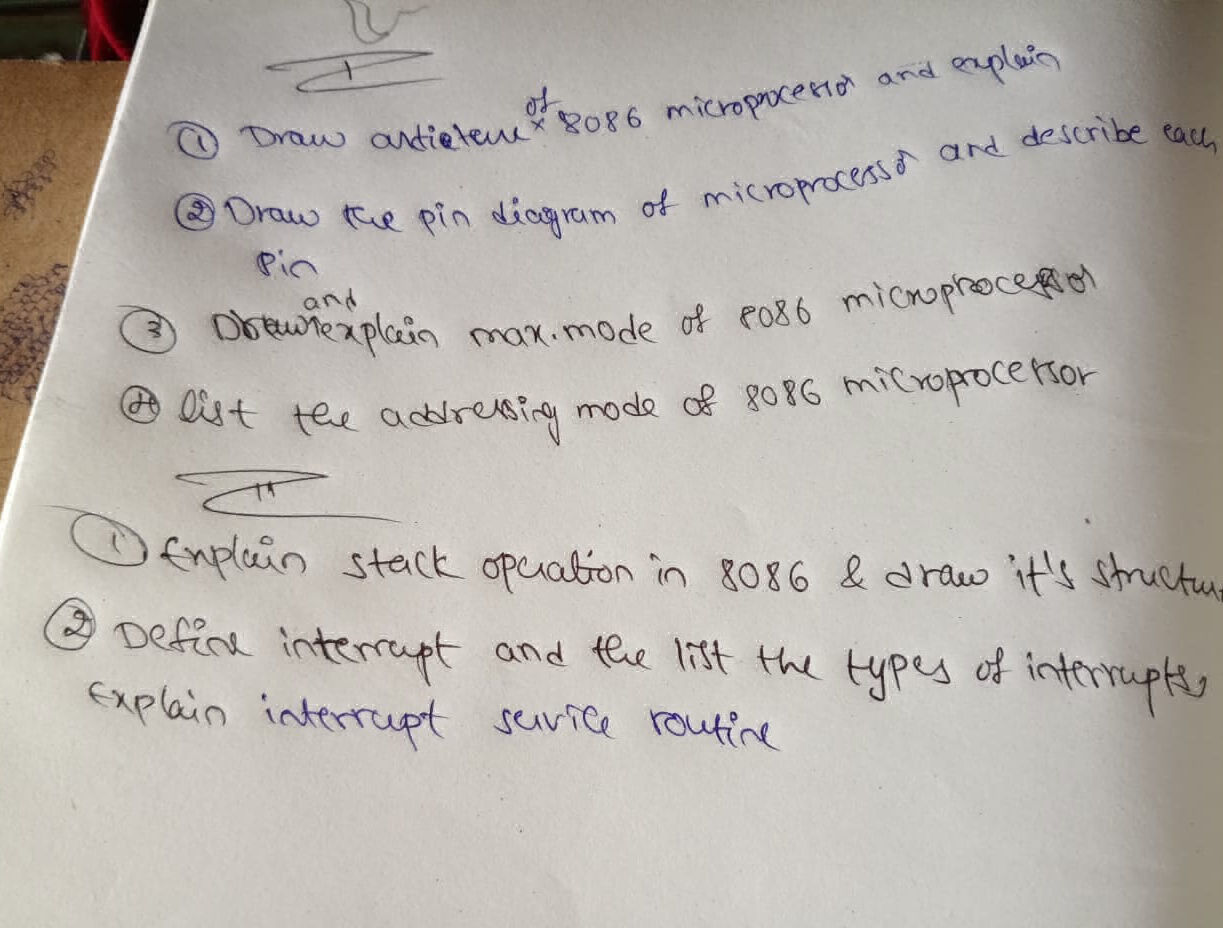 I
① Draw of 8086 microprocessor and explain
② Draw the pin diagram of microprocessor and describe each
Pin
and
③ Draw explain max. mode of 8086 microprocessor
④ list the addressing mode of 8086 microprocessor
II
① Explain stack operation in 8086 & draw it's
② Define interrupt and the list the types of interrupts,
Explain interrupt service routine